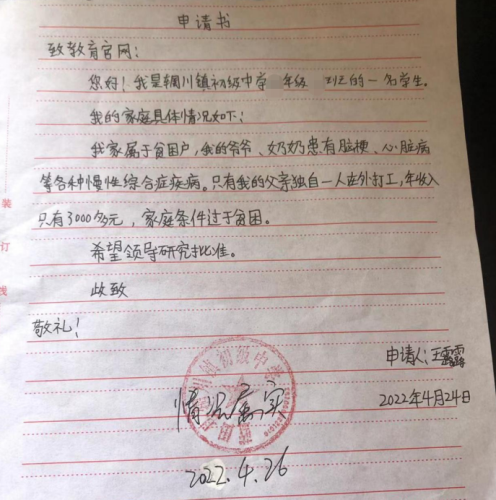 申请书
致教育官网：
您好！我是辋川镇初级中学 年级 班的一名学生。
我的家庭具体情况如下：
我家属于贫困户，我的爷爷、奶奶患有脑梗、心脏病
等各种慢性综合症疾病。只有我的父亲独自一人在外打工，年收入
只有3000多元，家庭条件过于贫困。
希望领导研究批准。
此致
敬礼！
申请人：王露露
2022年4月24日
初级中学
情况属实
2022.4.26
装
订
线